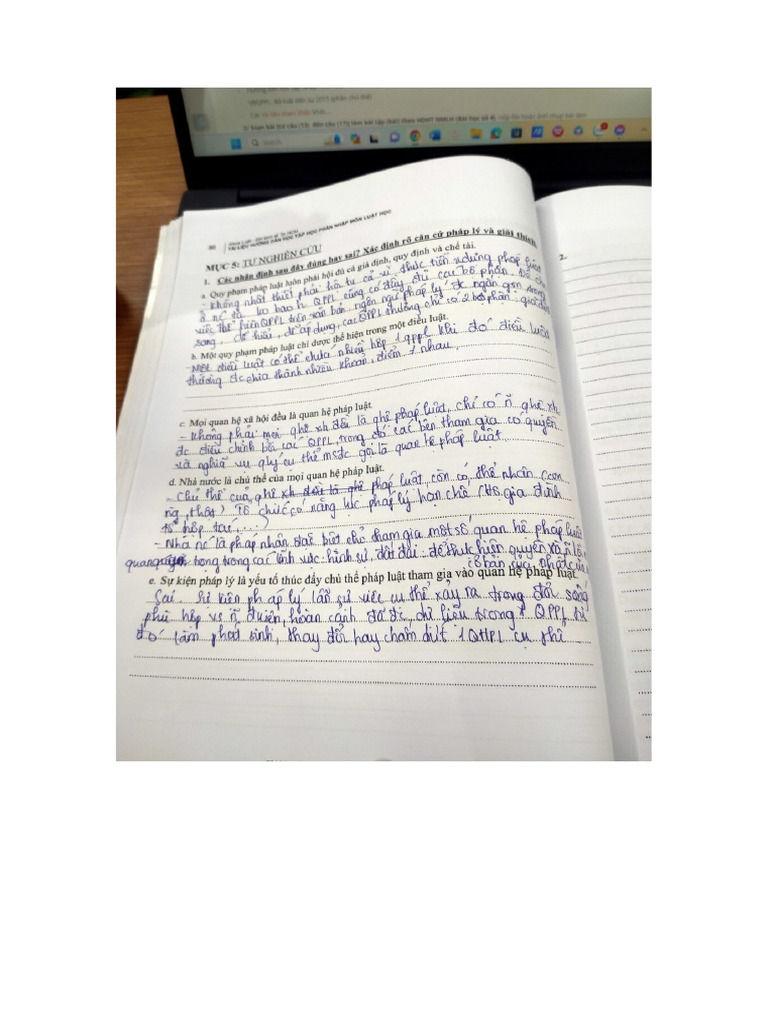 VBQPPL: Bộ luật dân sự 2015 (phần chủ thể)
Search
30
Khoa Luật - ĐH Kinh tế Tp.HCM
TÀI LIỆU HƯỚNG DẪN HỌC TẬP HỌC PHẦN NHẬP MÔN LUẬT HỌC
MỤC 5: TỰ NGHIÊN CỨU
1. Các nhận định sau đây đúng hay sai? Xác định rõ căn cứ pháp lý và giải thích
a. Quy phạm pháp luật luôn phải hội đủ cả giả định, quy định và chế tài.
- Không nhất thiết phải hội tụ cả vì thực tiễn xd ựng pháp luật
ở nc ta ko bao h QPPL cũng có đầy đủ cấu 3 bộ phận. Để cho
việc thể hiện QPPL trên văn bản ngôn ngữ pháp lý đc ngắn gọn trong
sáng, dễ hiểu, dễ áp dụng, các QPPL thường chỉ có 2 bộ phận: giả định
b. Một quy phạm pháp luật chỉ được thể hiện trong một điều luật.
- Một điều luật có thể chứa nhiều hợp 1 QPPL khi đó điều luật
thường đc chia thành nhiều khoản, điểm ≠ nhau.
2.
c. Mọi quan hệ xã hội đều là quan hệ pháp luật.
- Không phải mọi qhệ xh đều là qhệ pháp luật, chỉ có ~ qhệ xh
đc điều chỉnh bởi các QPPL, trong đó các bên tham gia có quyền
và nghĩa vụ qlý cụ thể ms đc gọi là quan hệ pháp luật
d. Nhà nước là chủ thể của mọi quan hệ pháp luật.
- Chủ thể của qhệ xh đều là qhệ pháp luật, còn có thể nhân (con
ng, thật) Tổ chức có năng lực pháp lý hạn chế (Hộ gia đình
tổ hợp tác, ...)
- Nhà nc là pháp nhân đặc biệt chỉ tham gia một số quan hệ pháp luật
quan trọng trong các lĩnh vực: hình sự, đất đai ... để thực hiện quyền và
cơ bản của
e. Sự kiện pháp lý là yếu tố thúc đẩy chủ thể pháp luật tham gia vào quan hệ pháp luật.
Sai. Sự kiện pháp lý là ~ sự việc cụ thể xảy ra trong đời sống
phù hợp vs ~ đkiện, hoàn cảnh đó đc dự liệu trong 1 QPPL từ
đó làm phát sinh, thay đổi hay chấm dứt 1 QHPL cụ thể